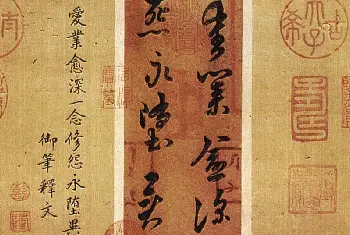 古希天子
愛業愈深
怨永墮異
愛業愈深一念修怨永墮異
御筆釋文